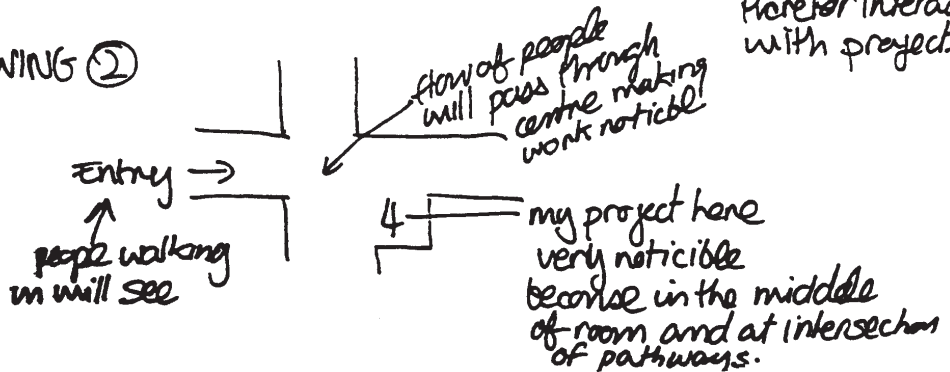 with project
WING ②
flow of people
will pass through
centre making
work noticible
Entry →
people walking
in will see
4
my project here
very noticible
becouse in the middle
of room and at intersection
of pathways.